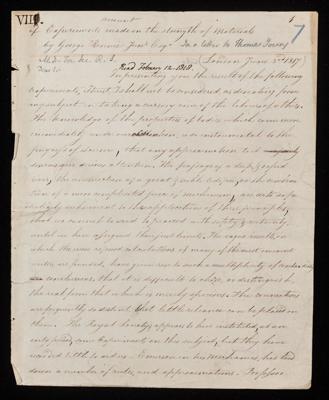 VIII
account
1
7
of Experiments made on the strength of Materials
by George Rennie Junr Esqr. In a letter to Thomas Young
M.D. For. Sec. R.S.
London June 2nd 1817
Dear Sir
Read February 12. 1818.
In presenting you the result of the following
experiments, I trust I shall not be considered as deviating from
my subject in taking a cursory view of the labours of others.
The knowledge of the properties of bodies which come more
immediately under our observation, is so instrumental to the
progress of science, that any approximation to it
deserves our serious attention. The passage over a deep & rapid
river, the construction of a great & noble edifice, or the combina
tion of a more complicated piece of mechanism, are arts so pe
culiarly subservient to the application of these principles,
that we cannot be said to proceed with safety & certainty,
until we have assigned their just limits. The experiments, on
which the more refined calculations of many of the most eminent
writers are founded, have given rise to such a multiplicity of contradictory
conclusions, that it is difficult to choose, or distinguish
the real from that which is merely specious. The connexions
are frequently so distant, that little reliance can be placed on
them. The Royal Society appears to have instituted, at an
early period, some experiments on this subject, but they have
recorded little to aid us. Emerson in his mechanics, has laid
down a number of rules, and approximations. Professor